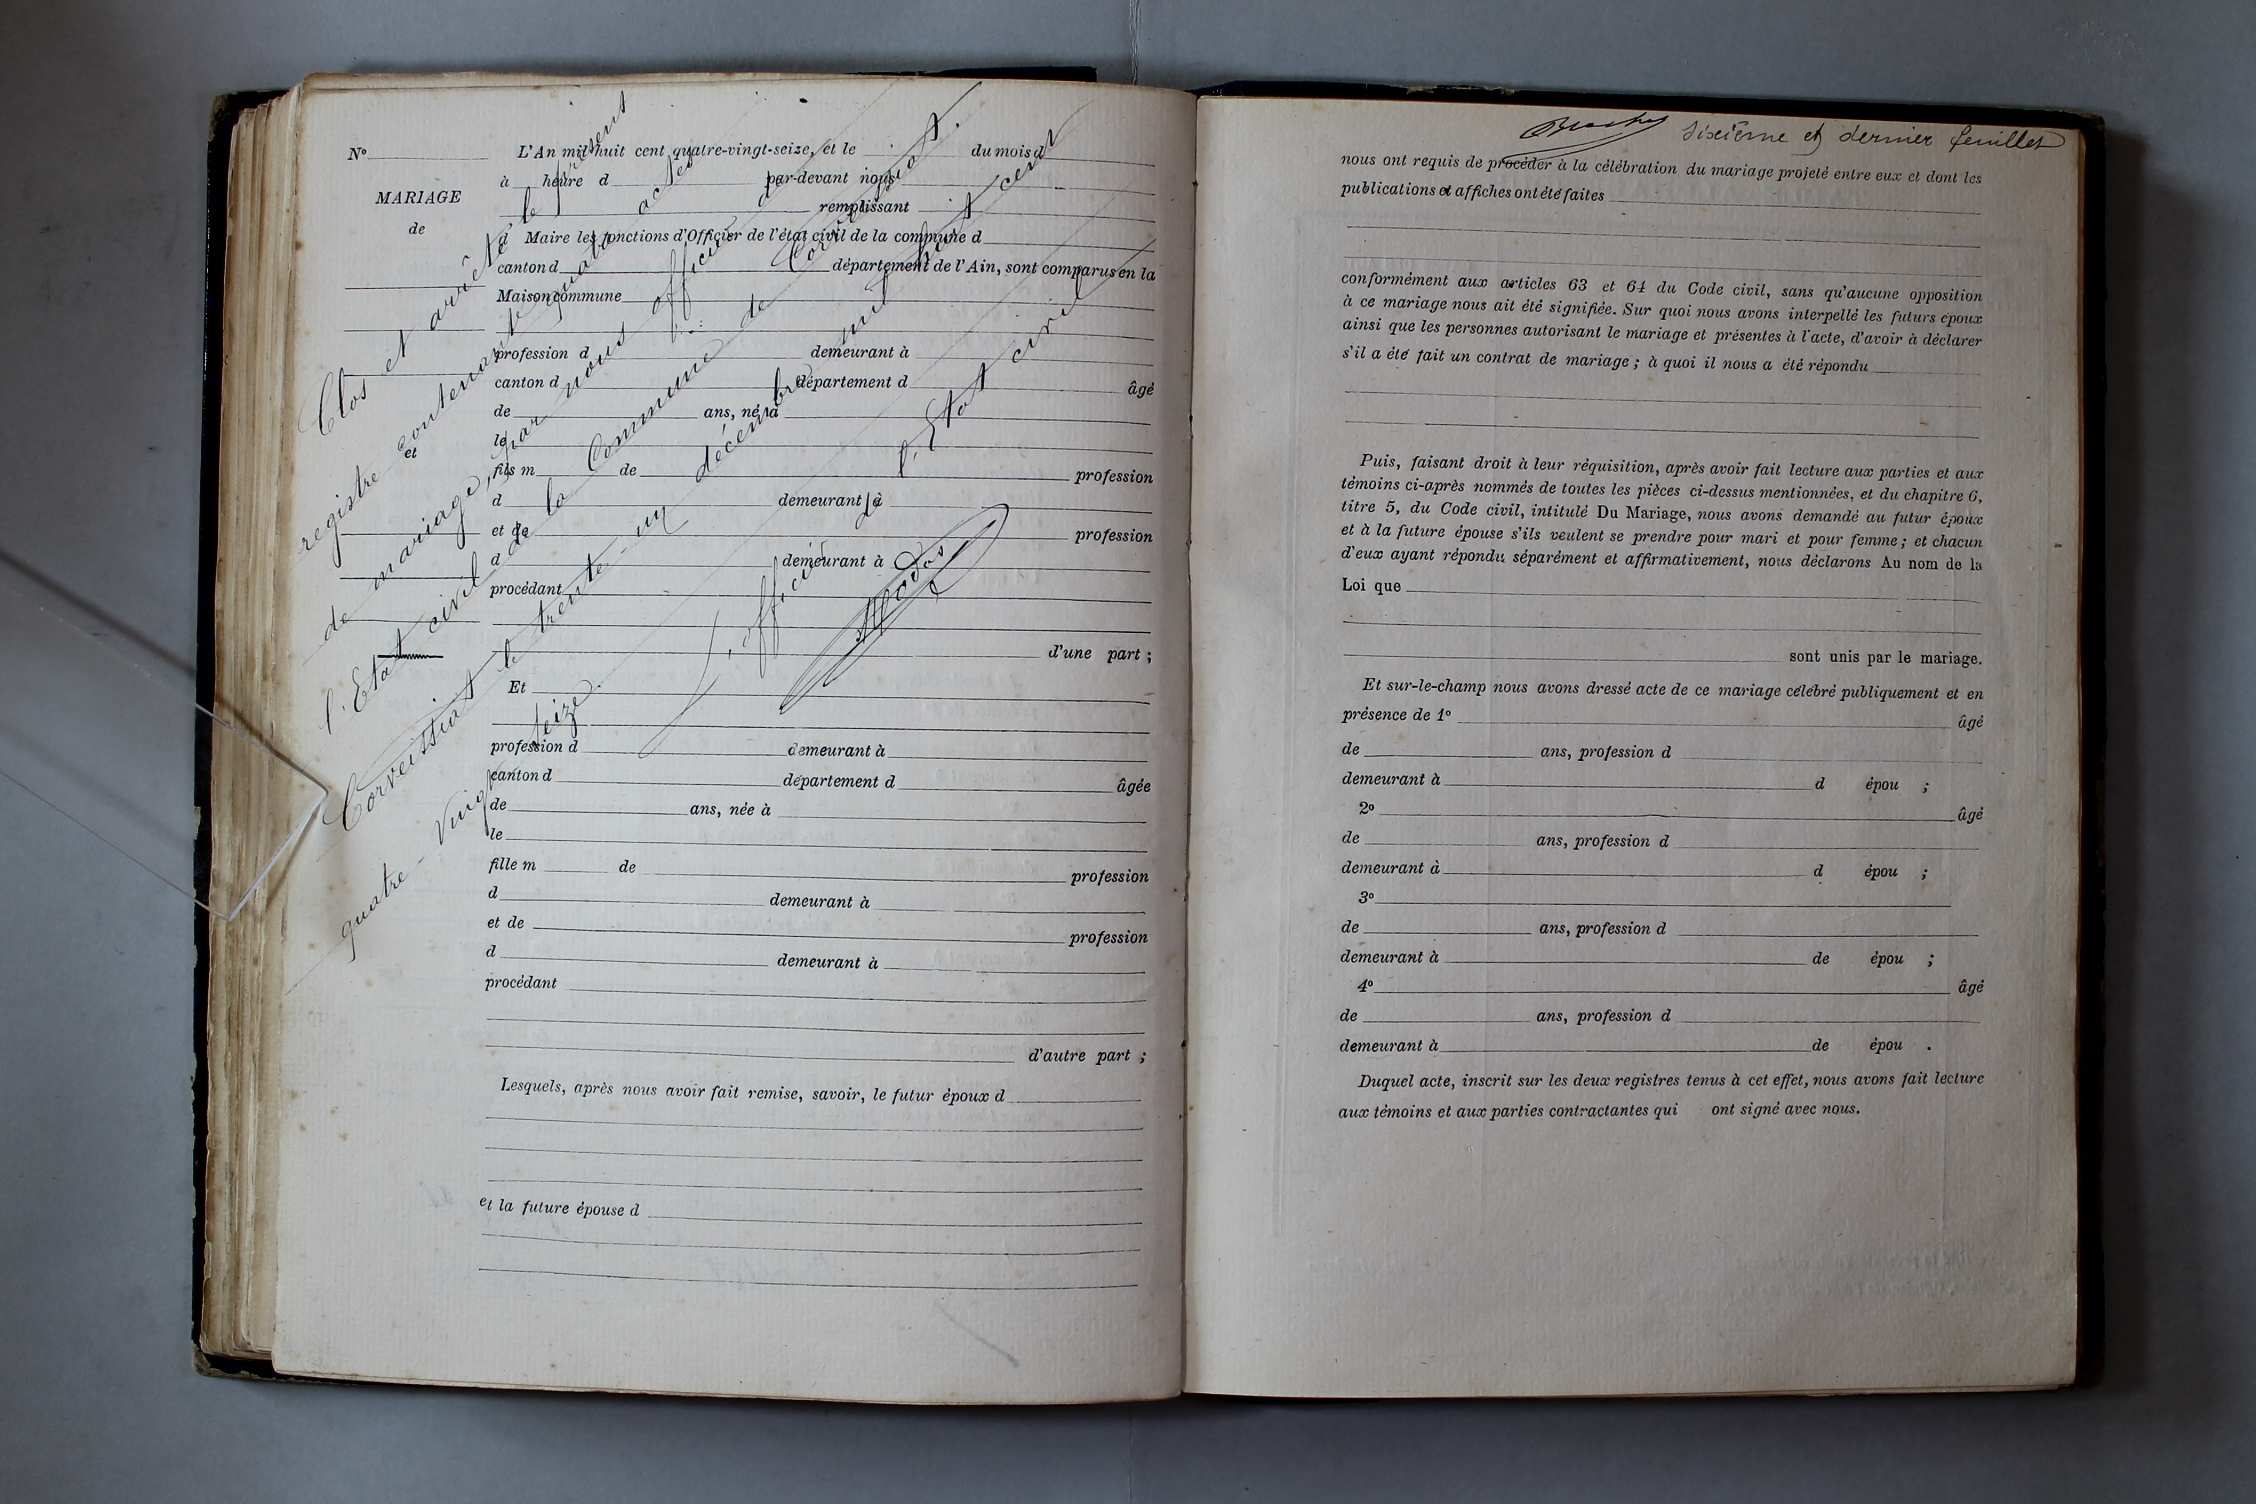 N° L'An mil huit cent quatre-vingt-seize, et le du mois d
à heure d par-devant nous
MARIAGE
remplissant
de
d Maire les fonctions d'Officier de l'état civil de la commune d
canton d département de l'Ain, sont comparus en la
Maison commune
profession d demeurant à
canton d département d âgé
de ans, né à
le
et
fils m de profession
d demeurant à
et de profession
d demeurant à
procédant
d'une part ;
Et
profession d demeurant à
canton d département d âgée
de ans, née à
le
fille m de profession
d demeurant à
et de profession
d demeurant à
procédant
d'autre part ;
Lesquels, après nous avoir fait remise, savoir, le futur époux d
et la future épouse d
Clos et arrêté le présent
registre contenant quatre actes
de mariage, par nous officier de
l'Etat civil de la Commune de Corveissiat.
Corveissiat le trente-un décembre mil huit cent
quatre-vingt seize.
L'officier de l'Etat civil
sixième et dernier feuillet
nous ont requis de procéder à la célébration du mariage projeté entre eux et dont les
publications et affiches ont été faites
conformément aux articles 63 et 64 du Code civil, sans qu'aucune opposition
à ce mariage nous ait été signifiée. Sur quoi nous avons interpellé les futurs époux
ainsi que les personnes autorisant le mariage et présentes à l'acte, d'avoir à déclarer
s'il a été fait un contrat de mariage ; à quoi il nous a été répondu
Puis, faisant droit à leur réquisition, après avoir fait lecture aux parties et aux
témoins ci-après nommés de toutes les pièces ci-dessus mentionnées, et du chapitre 6,
titre 5, du Code civil, intitulé Du Mariage, nous avons demandé au futur époux
et à la future épouse s'ils veulent se prendre pour mari et pour femme ; et chacun
d'eux ayant répondu séparément et affirmativement, nous déclarons Au nom de la
Loi que
sont unis par le mariage.
Et sur-le-champ nous avons dressé acte de ce mariage célébré publiquement et en
présence de 1° âgé
de ans, profession d
demeurant à d épou ;
2° âgé
de ans, profession d
demeurant à d épou ;
3°
de ans, profession d
demeurant à de épou ;
4° âgé
de ans, profession d
demeurant à de épou .
Duquel acte, inscrit sur les deux registres tenus à cet effet, nous avons fait lecture
aux témoins et aux parties contractantes qui ont signé avec nous.